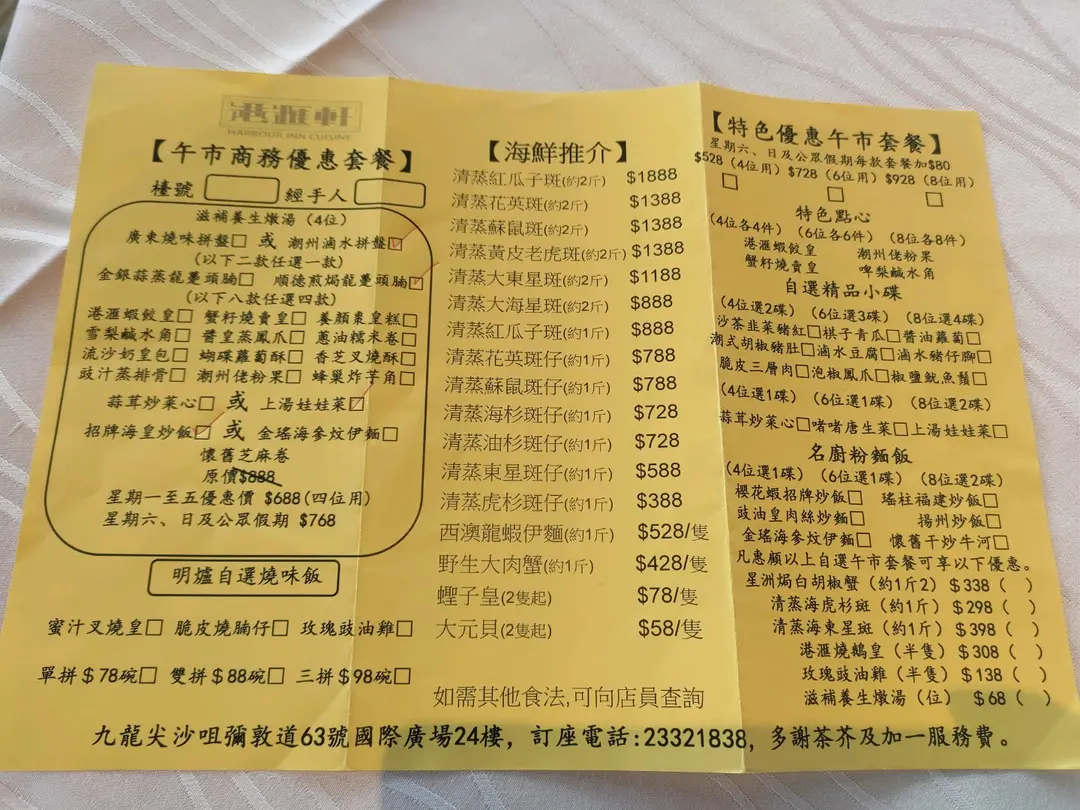 港滙軒
HARBOUR INN CUISINE
【午市商務優惠套餐】
檯號 經手人
滋補養生燉湯 (4位)
廣東燒味拼盤□ 或 潮州滷水拼盤□
(以下二款任選一款)
金銀蒜蒸龍躉頭腩□ 順德煎焗龍躉頭腩□
(以下八款任選四款)
港滙蝦餃皇□ 蟹籽燒賣皇□ 養顏棗皇糕□
雪梨鹹水角□ 醬皇蒸鳳爪□ 蔥油糯米卷□
流沙奶皇包□ 蝴蝶蘿蔔酥□ 香芝叉燒酥□
豉汁蒸排骨□ 潮州佬粉果□ 蜂巢炸芋角□
蒜茸炒菜心□ 或 上湯娃娃菜□
招牌海皇炒飯□ 或 金瑤海參炆伊麵□
懷舊芝麻卷
原價$888
星期一至五優惠價 $688(四位用)
星期六、日及公眾假期 $768
明爐自選燒味飯
蜜汁叉燒皇□ 脆皮燒腩仔□ 玫瑰豉油雞□
單拼$78碗□ 雙拼$88碗□ 三拼$98碗□
【海鮮推介】
清蒸紅瓜子斑(約2斤) $1888
清蒸花英斑(約2斤) $1388
清蒸蘇鼠斑(約2斤) $1388
清蒸黃皮老虎斑(約2斤) $1388
清蒸大東星斑(約2斤) $1188
清蒸大海星斑(約2斤) $888
清蒸紅瓜子斑(約1斤) $888
清蒸花英斑仔(約1斤) $788
清蒸蘇鼠斑仔(約1斤) $788
清蒸海杉斑仔(約1斤) $728
清蒸油杉斑仔(約1斤) $728
清蒸東星斑仔(約1斤) $588
清蒸虎杉斑仔(約1斤) $388
西澳龍蝦伊麵(約1斤) $528/隻
野生大肉蟹(約1斤) $428/隻
蟶子皇(2隻起) $78/隻
大元貝(2隻起) $58/隻
如需其他食法,可向店員查詢
【特色優惠午市套餐】
星期六、日及公眾假期每款套餐加$80
$528 (4位用) $728 (6位用) $928 (8位用)
□ □ □
特色點心
(4位各4件) (6位各6件) (8位各8件)
港滙蝦餃皇 潮州佬粉果
蟹籽燒賣皇 啤梨鹹水角
自選精品小碟
(4位選2碟) (6位選3碟) (8位選4碟)
沙茶韭菜豬紅□棋子青瓜□醬油蘿蔔□
潮式胡椒豬肚□滷水豆腐□滷水豬仔腳□
脆皮三層肉□泡椒鳳爪□椒鹽魷魚鬚□
(4位選1碟) (6位選1碟) (8位選2碟)
蒜茸炒菜心□啫啫唐生菜□上湯娃娃菜□
名廚粉麵飯
(4位選1碟) (6位選1碟) (8位選2碟)
櫻花蝦招牌炒飯□ 瑤柱福建炒飯□
豉油皇肉絲炒麵□ 揚州炒飯□
金瑤海參炆伊麵□ 懷舊干炒牛河□
凡惠顧以上自選午市套餐可享以下優惠。
星洲焗白胡椒蟹 (約1斤2) $338 ( )
清蒸海虎杉斑 (約1斤) $298 ( )
清蒸海東星斑 (約1斤) $398 ( )
港滙燒鵝皇 (半隻) $308 ( )
玫瑰豉油雞 (半隻) $138 ( )
滋補養生燉湯 (位) $68 ( )
九龍尖沙咀彌敦道63號國際廣場24樓, 訂座電話:23321838, 多謝茶芥及加一服務費。